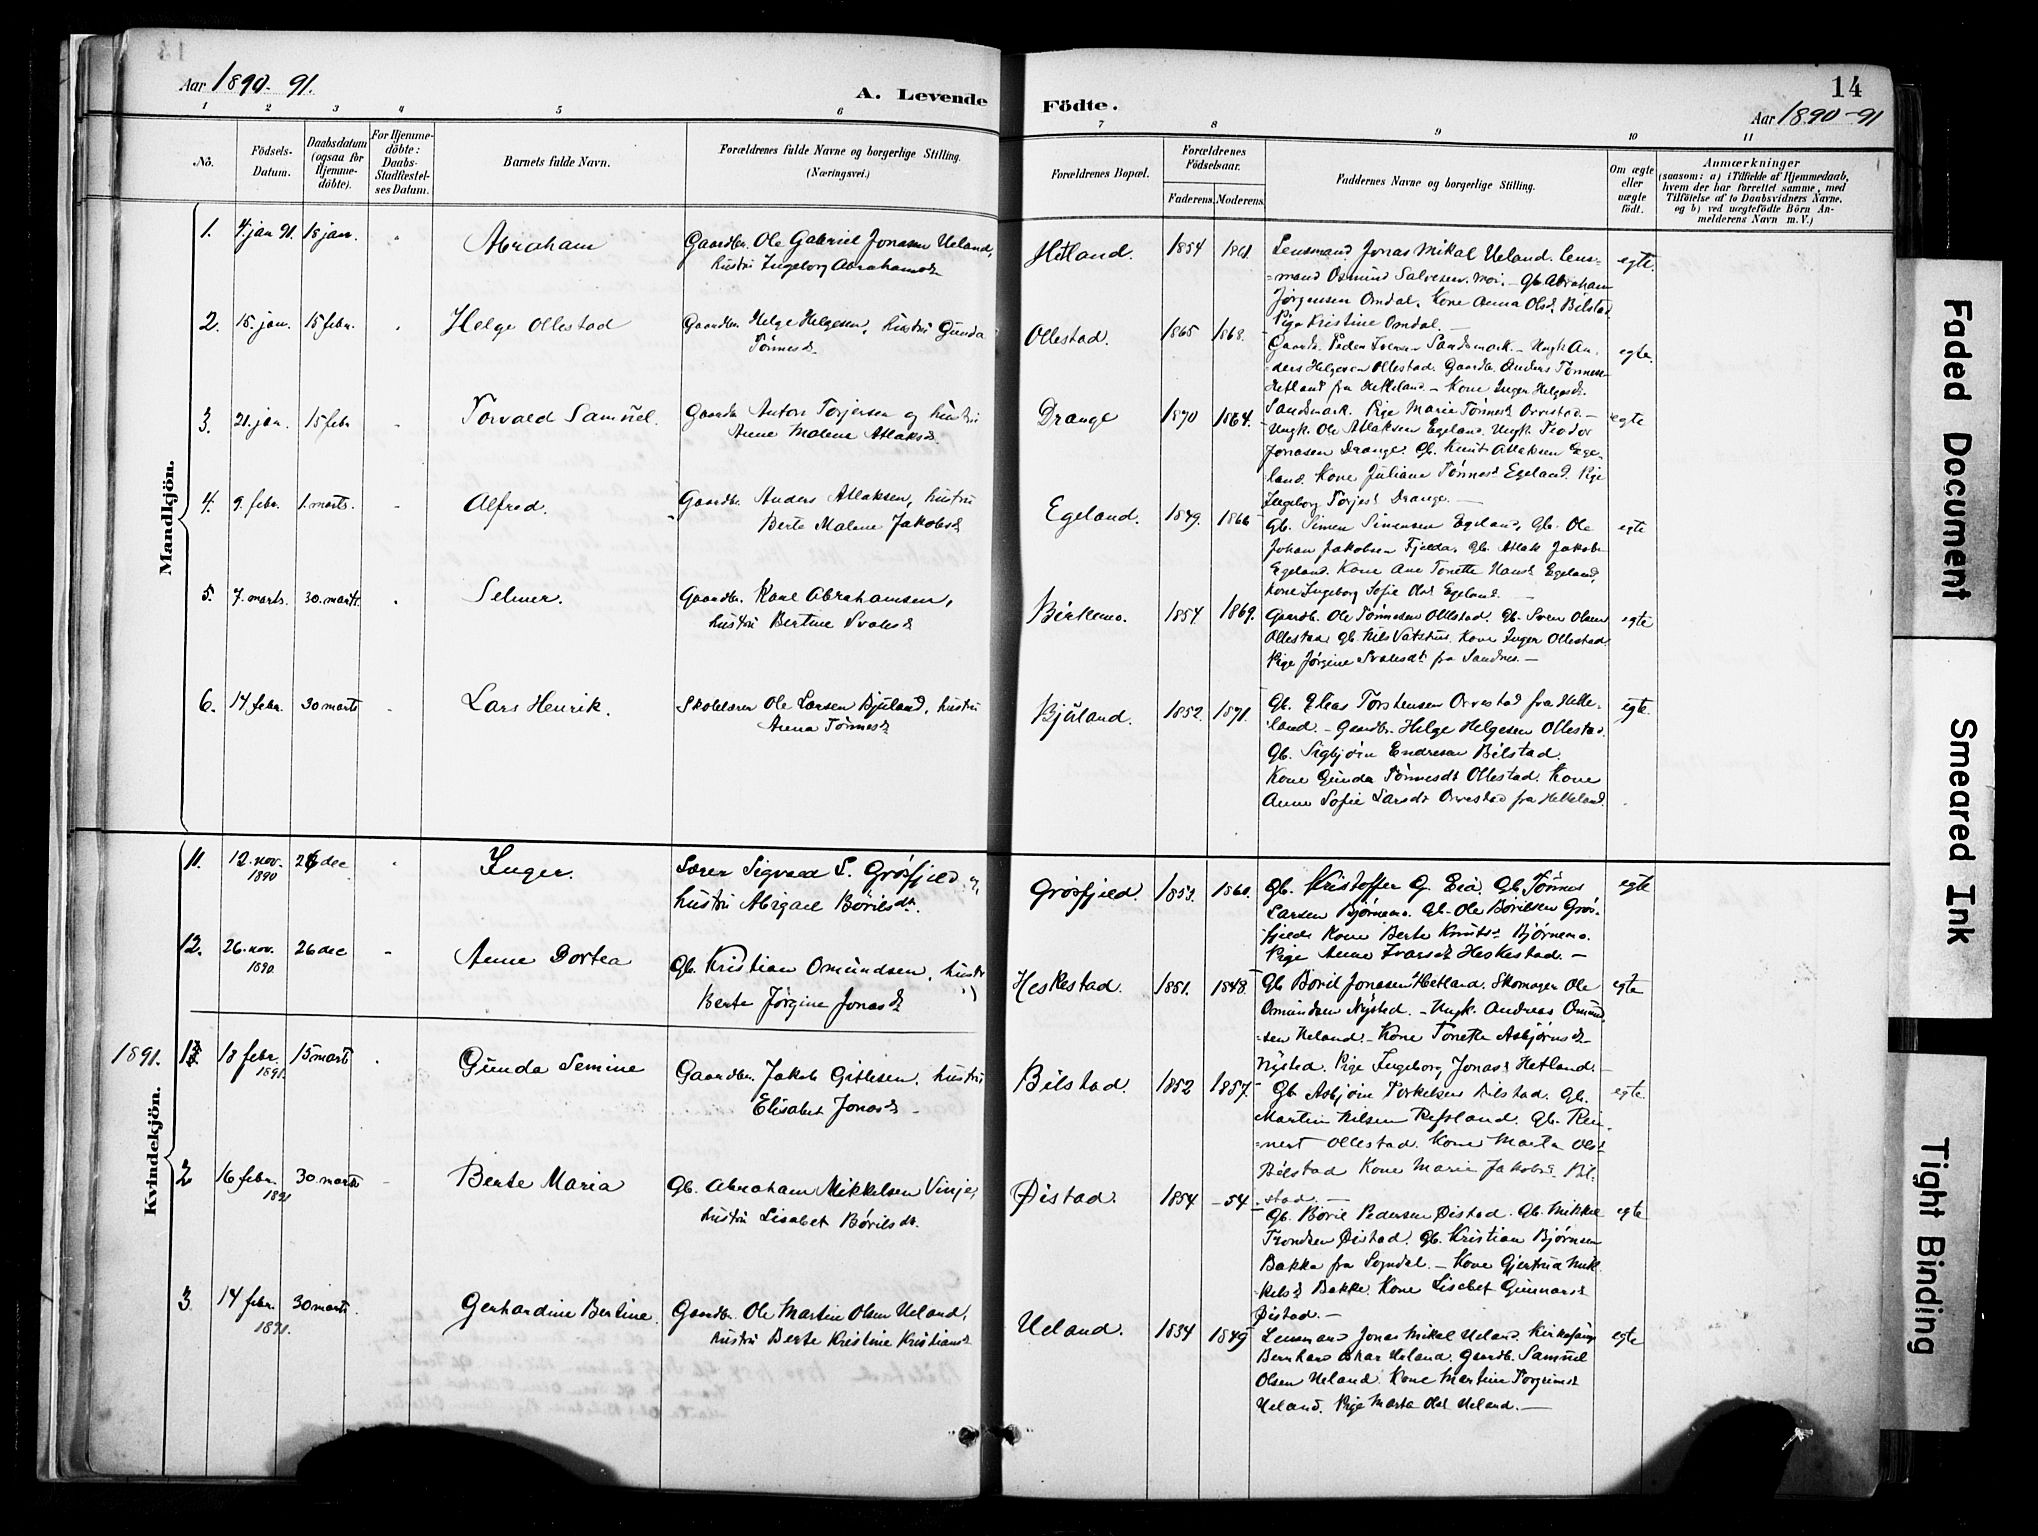 Aar 1890-91.
A. Levende
Födte.
14
Aar 1890-91
1 2 3 4 5 6 7 8 9 10 11
No.
Födsels-Datum.
Daabsdatum (ogsaa for Hjemme-döbte).
For Hjemme-döbte: Daabs-Stadfæstel-ses Datum.
Barnets fulde Navn.
Forældrenes fulde Navne og borgerlige Stilling.
(Næringsvei.)
Forældrenes Bopæl.
Forældrenes Födselsaar.
Faderens. Moderens.
Faddernes Navne og borgerlige Stilling.
Om ægte eller uægte födt.
Anmærkninger
(saasom: a) i Tilfælde af Hjemmedaab,
hvem der har forrettet samme, med
Tilföielse af to Daabsvidners Navne.
og b) ved uægtefödte Börn An-
melderens Navn m. V.)
Mandkjön.
1. 4. jan 91. 18 jan. Abraham
Gaardbr. Ole Gabriel Jonasen Ueland,
hustru Ingeborg Abrahamsd.
Hetland. 1854 1861
Lensmand Jonas Mikal Ueland. Lens-
=mand Osmund Salvesen Moi. - Gb. Abraham
Jørgensen Omdal. Kone Anna Olsd. Bilstad
Pige Kristine Omdal. -
egte.
2. 15. jan. 15 febr. Helge Ollestad
Gaardbr. Helge Helgesen, hustru Gunda
Tönnesd.
Ollestad. 1865 1868.
Gaardb. Peder Iversen Sandsmark. - Ungk An-
ders Helgesen Ollestad. Gaardbr. Anders Tönnes
Hetland fra Helleland - Kone Inger Helgesd.
Sandsmark. Pige Marie Tönnesd. Orrestad. -
egte.
3. 21. jan. 15 febr Torvald Samuel.
Gaardbr Anton Torjersen og hustru
Anne Malene Atlaksd.
Drange 1870 1864.
Ungk. Ole Atlaksen Egeland. Ungk. Teodor
Jonasen Drange. Gb. Knut Atlaksen Ege-
land. Kone Juliane Tönnesd Egeland. Pige
Ingeborg Torjesd Drange. -
egte
4. 9. febr. 1. marts. Alfred.
Gaardbr. Anders Atlaksen, hustru
Berte Malene Jakobsd
Egeland. 1849. 1866
Gb. Simen Simensen Egeland, Gb. Ole
Johan Jakobsen Fjelda. Gb. Atlak Jakobs
Egeland. Kone Ane Tonette Hansd Egeland,
Kone Ingeborg Sofie Olsd Egeland. -
egte
5. 7. marts. 30. marts. Selmer.
Gaardbr. Karl Abrahamsen,
hustru Bertine Svalesd
Birkemo. 1854 1869.
Gaardb. Ole Tönnesen Ollestad. Gb. Sven Olsen
Ollestad Gb. Nils Vatshus. Kone Inger Ollestad
Pige Jørgine Svalesdt. fra Sandnes. -
egte
6. 14 febr. 30 marts Lars Henrik.
Skolelærer Ole Larsen Bjuland, hustru
Anna Tönnesd
Bjuland. 1852. 1871.
Gb. Elias Torstensen Orrestad fra Helle-
land. - Gaardbr. Helge Helgesen Ollestad.
Gb. Sigbjørn Endresen Bilstad.
Kone Gunda Tönnesdt Ollestad. Kone
Anne Sofie Larsdt Orrestad fra Helleland.
egte.
Kvindekjön.
11. 12. nov. 1890 26 dec Inger.
Lærer Sigvald S. Grösfjeld,
hustru Abigael Börilsdt.
Grösfjeld. 1853. 1860.
Gb. Kristoffer G. Eia. Gb. Tönnes
Larsen Bjørnemo. Gb. Ole Börilsen Grös-
fjeld. Kone Berte Knutsd. Bjørnemo.
Pige Anne Ivarsd Heskestad. -
egte
12. 26. nov. 1890. 26 dec Anne Dortea
Gb. Kristian Omundsen, hustr
Berte Jørgine Jonasd
Heskestad. 1851. 1848.
Gb Böril Jonasen Hetland. Skomager Ole
Omundsen Nysted. - Ungk. Andreas Omund-
sen Ueland. - Kone Tonette Asbjörnsd.
Nysted. Pige Ingeborg Jonasd Hetland. -
egte
1891. 1 18 febr. 1891. 15 marts Gunda Semine
Gaardbr. Jakob Gitlesen. hustru
Elisabet Jonasd. -
Bilstad 1852 1857.
Gb. Asbjörn Torkelsen Bilstad. Gb.
Martin Nilsen Refsland. Gb. Rei-
=nert Ollestad. Kone Marta Olsd
Bilstad Kone Marie Jakobsd. Bil-
stad. -
egte
2 16 febr. 1891 30 marts Berte Maria
Gb. Abraham Mikkelsen Vinje,
hustru Lisabet Börilsdt.
Øistad. 1854 -54
Gb. Boril Pedersen Øistad. Gb. Mikkel
Trondsen Øistad. Gb. Kristian Bjørnsen
Bakka fra Sogndal. - Kone Gjertrud Mik-
kelsd Bakke. Kone Lisabet Gunnarsd
Øistad. -
egte
3. 14 febr. 1891. 30 marts. Gerhardine Bertine.
Gaardbr. Ole Martin Olsen Ueland,
hustru Berte Kristine Kristiansd
Ueland. 1834 1849
Lensmand Jonas Mikal Ueland. Kirkesanger
Bernhard Oskar Ueland. Gaardb. Samuel
Olsen Ueland. Kone Martine Torgrimsd
Ueland. Pige Marta Olsd Ueland. -
egte
Faded Document
Smeared Ink
Tight Binding